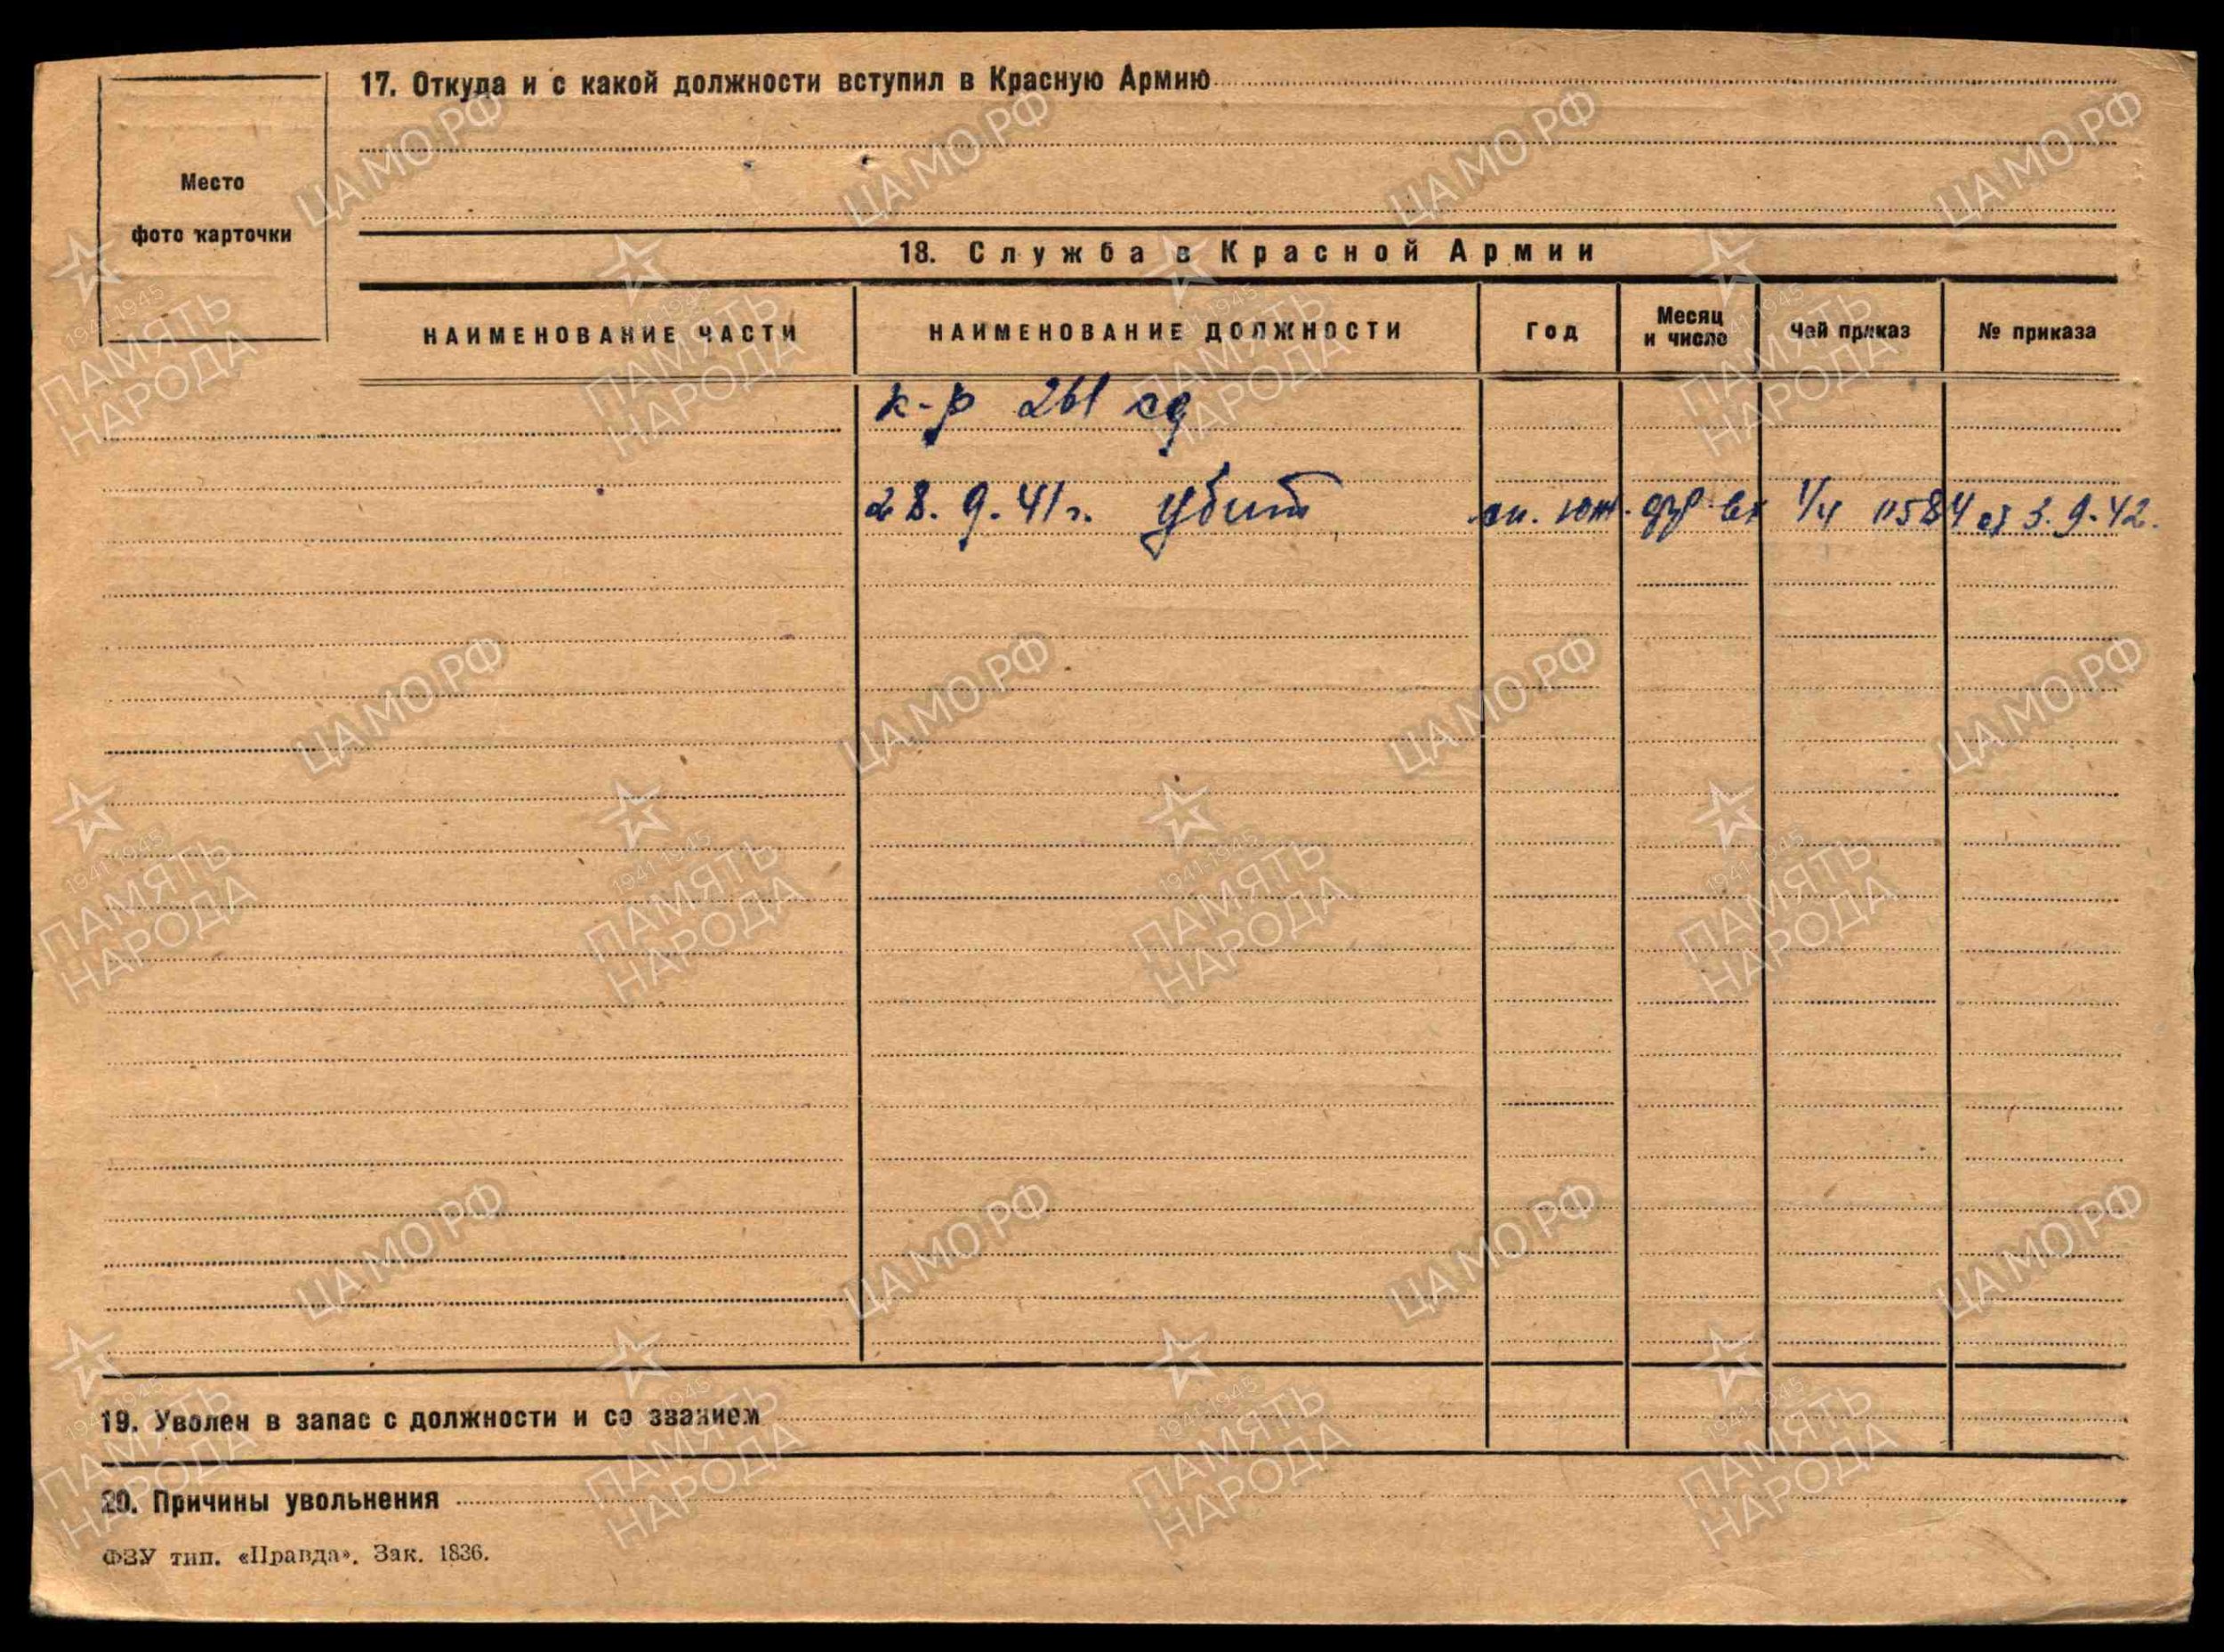 17. Откуда и с какой должности вступил в Красную Армию
Место
фото карточки
18. Служба в Красной Армии
НАИМЕНОВАНИЕ ЧАСТИ НАИМЕНОВАНИЕ ДОЛЖНОСТИ Год Месяц и число Чей приказ № приказа
к-р 261 сд
28.9.41г. убит сп. юж. вх 1/4 11584 от 3.9.42.
19. Уволен в запас с должности и со званием
20. Причины увольнения
ФЗУ тип. «Правда». Зак. 1836.
ЦАМО.РФ
1941-1945
ПАМЯТЬ
НАРОДА